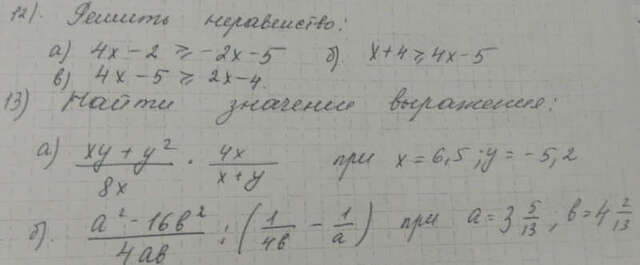 12). Решить неравенство:
а) 4x-2 ⩾ -2x-5 б). x+4 ⩾ 4x-5
в) 4x-5 ⩾ 2x-4.
13) Найти значение выражения:
а) (xy+y²)/(8x) · (4x)/(x+y) при x=6,5; y=-5,2
б). (a²-16b²)/(4ab) : (1/(4b) - 1/a) при a=3 5/13, b=4 2/13